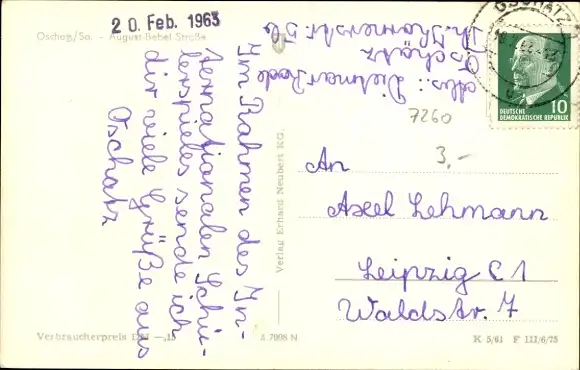 20. Feb. 1963
Oschatz/Sa. - August-Bebel Straße
Im Rahmen des In-
ternationalen Schü-
lerspieles sende ich
dir viele Grüße aus
Oschatz
Abs.: Dietmar
Oschatz
Th. Körnerstr. 56
OSCHATZ
10
DEUTSCHE
DEMOKRATISCHE REPUBLIK
7260
3,-
An
Axel Lehmann
Leipzig C 1
Waldstr. 7
Verlag Erhard Neubert KG.
Verbraucherpreis DM —,15
A 7098 N
K 5/61 F III/6/75